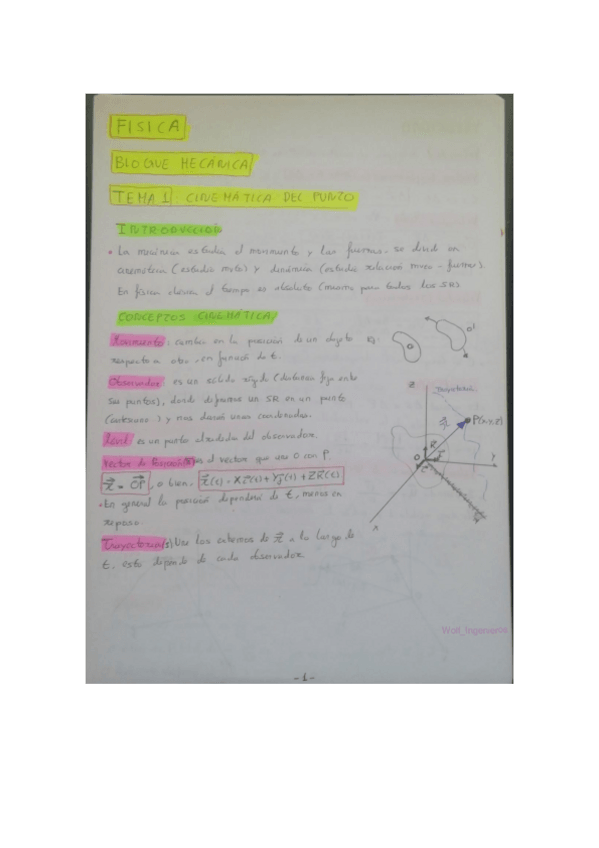 FISICA
BLOQUE MECÁNICA
TEMA 1: CINEMÁTICA DEL PUNTO
INTRODUCCIÓN
• La mecánica estudia el movimiento y las fuerzas. se divide en
cinemática (estudia mvto) y dinámica (estudia relación mvto - fuerzas).
En física clásica el tiempo es absoluto (mismo para todos los SR)
CONCEPTOS CINEMÁTICA
Movimiento: cambio en la posición de un objeto
respecto a otro, en función de t.
Observador: es un sólido rígido (distancia fija entre
sus puntos), donde definimos un SR en un punto
) y nos dará unas coordenadas.
Móvil es un punto alrededor del observador.
Vector de Posición es el vector que une O con P
r = OP, o bien, r(t) = Xi(t) + Yj(t) + ZK(t)
• En general la posición dependerá de t, menos en
reposo.
Trayectoria(s) Une los extremos de r a lo largo de
t, esto depende de cada observador.
O
O'
Z
Trayectoria
r
P(x,y,z)
O
Y
X
Woll_Ingenieros
-1-